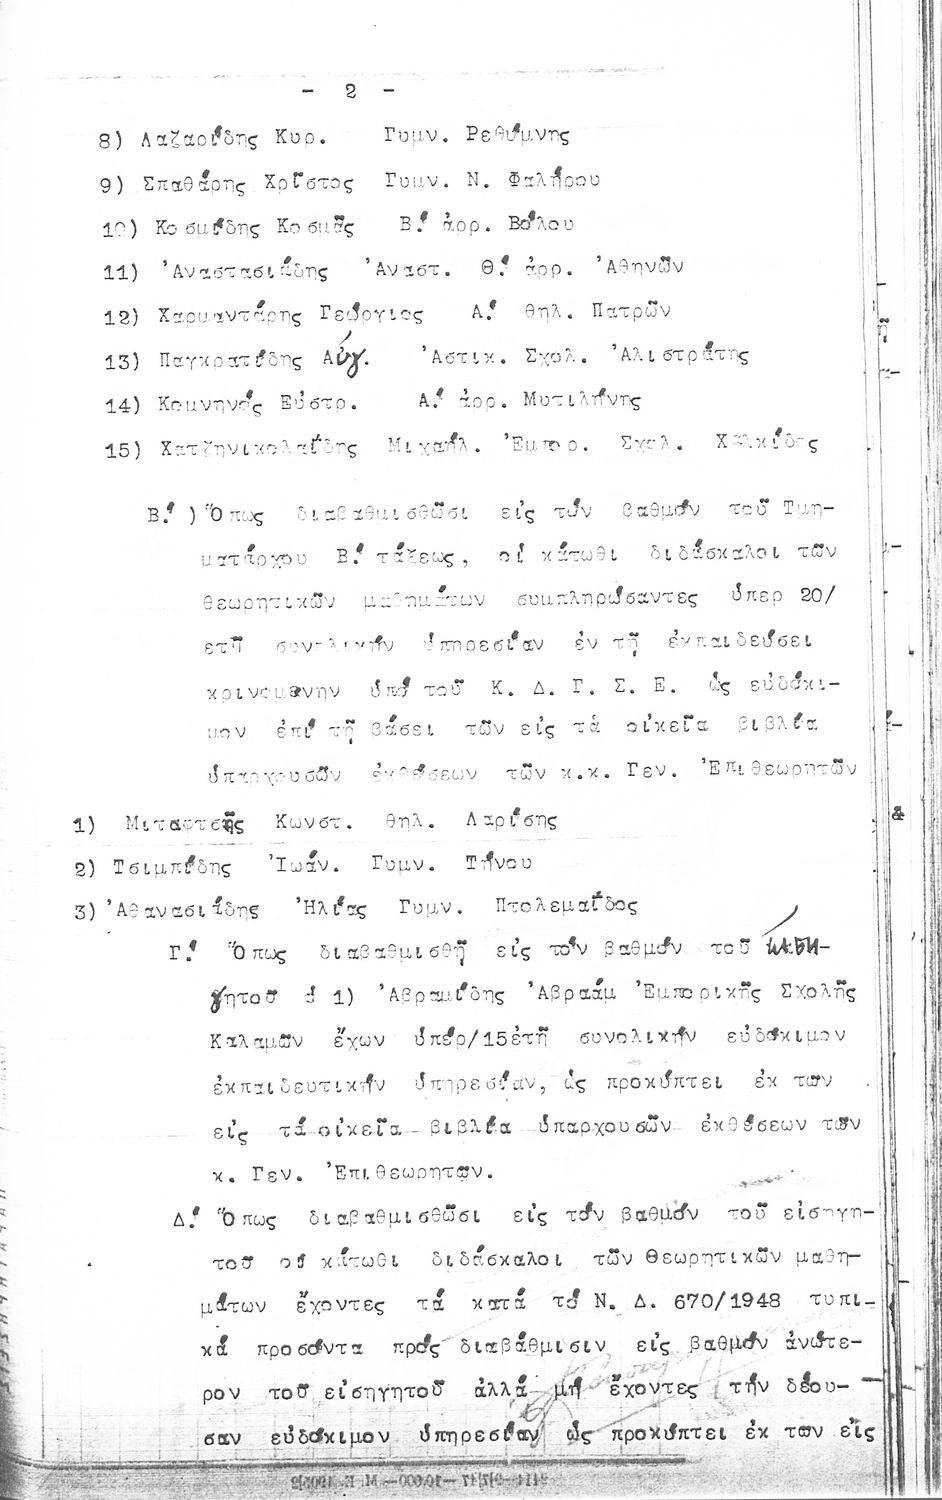 - 2 -
8) Λαζαρίδης Κυρ. Γυμν. Ρεθύμνης
9) Σπαθάρης Χρῖστος Γυμν. Ν. Φαλήρου
10) Κοσμίδης Κοσμᾶς Β! ἀρρ. Βόλου
11) 'Αναστασιάδης 'Αναστ. Θ! ἀρρ. 'Αθηνῶν
12) Χαρμαντάρης Γεώργιος Α! θηλ. Πατρῶν
13) Παγκρατίδης Αὐγ. 'Αστικ. Σχολ. 'Αλιστράτης
14) Κομνηνός Εὐστρ. Α! ἀρρ. Μυτιλήνης
15) Χατζηνικολαΐδης Μιχαήλ. 'Εμπορ. Σχολ. Χαλκίδος
Β! ) Ὅπως διαβαθμισθῶσι εἰς τόν βαθμόν τοῦ Τμη-
ματάρχου Β! τάξεως, οἱ κάτωθι διδάσκαλοι τῶν
θεωρητικῶν μαθημάτων συμπληρώσαντες ὑπερ 20/
ετῆ συνολικήν ὑπηρεσίαν ἐν τῇ ἐκπαιδεύσει
κρινομένην ὑπό τοῦ Κ. Δ. Γ. Σ. Ε. ὡς εὐδόκι-
μον ἐπί τῇ βάσει τῶν εἰς τὰ οἰκεῖα βιβλία
ὑπαρχουσῶν ἐκθέσεων τῶν κ.κ. Γεν. 'Επιθεωρητῶν
1) Μιταφτσῆς Κωνστ. θηλ. Λαρίσης
2) Τσιμπίδης 'Ιωάν. Γυμν. Τήνου
3) 'Αθανασιάδης 'Ηλίας Γυμν. Πτολεμαΐδος
Γ! Ὅπως διαβαθμισθῇ εἰς τόν βαθμόν τοῦ εἰσηγητοῦ ὁ 1) 'Αβραμίδης 'Αβραάμ 'Εμπορικῆς Σχολῆς
Καλαμῶν ἔχων ὑπέρ/15ἐτῆ συνολικήν εὐδόκιμον
ἐκπαιδευτικήν ὑπηρεσίαν, ὡς προκύπτει ἐκ των
εἰς τά οἰκεῖα βιβλία ὑπαρχουσῶν ἐκθέσεων τῶν
κ. Γεν. 'Επιθεωρητων.
Δ! Ὅπως διαβαθμισθῶσι εἰς τόν βαθμόν τοῦ εἰσηγη-
τοῦ οἱ κάτωθι διδάσκαλοι τῶν Θεωρητικῶν μαθη-
μάτων ἔχοντες τά κατά τό Ν. Δ. 670/1948 τυπι-
κά προσόντα πρός διαβάθμισιν εἰς βαθμόν ἀνώτε-
ρον τοῦ εἰσηγητοῦ ἀλλά μή ἔχοντες τήν δέου-
σαν εὐδόκιμον ὑπηρεσίαν ὡς προκύπτει ἐκ των εἰς